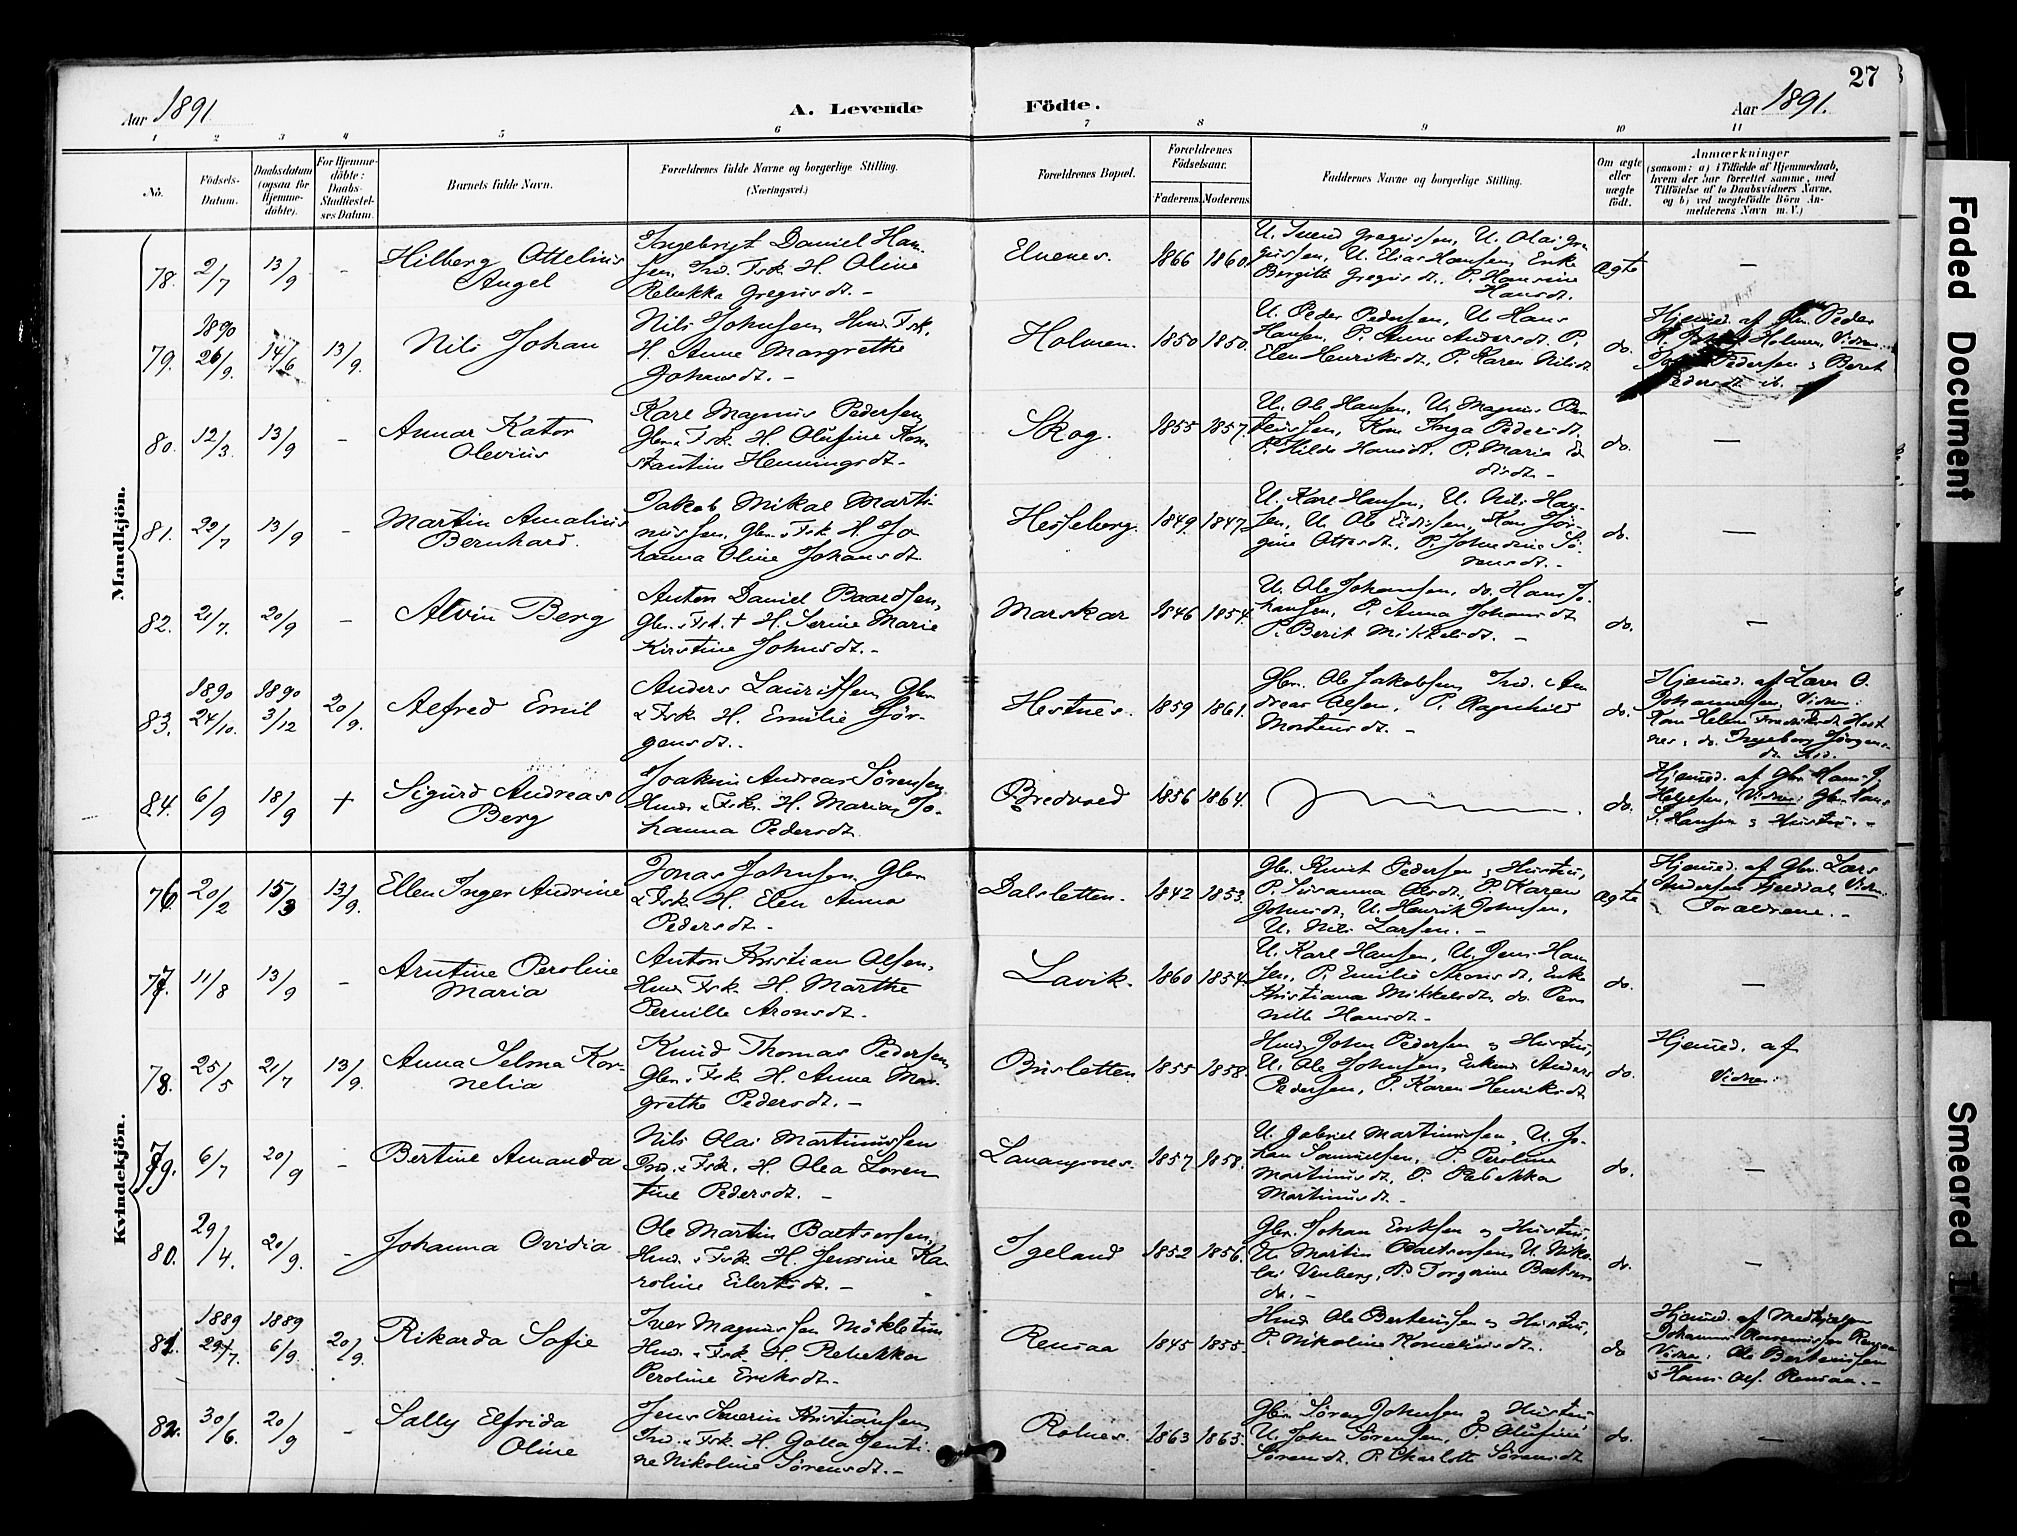 27
Aar 1891. A. Levende Födte. Aar 1891.
1 2 3 4 5 6 7 8 9 10 11
No.
Födsels-Datum.
Daabsdatum (ogsaa for Hjemme-döbte).
For Hjemme-döbte: Daabs-Stadfæstel-ses Datum.
Barnets fulde Navn.
Forældrenes fulde Navne og borgerlige Stilling. (Næringsvei.)
Forældrenes Bopæl.
Forældrenes Födselsaar.
Faderens Moderens
Faddernes Navne og borgerlige Stilling.
Om ægte eller uægte födt.
Anmærkninger
(saasom: a) i Tilfælde af Hjemmedaab,
hvem der har forrettet samme, med
Tilföielse af to Daabsvidners Navne,
og b) ved uægtefödte Börn An-
melderens Navn m. V.)
Mandkjön.
78. 2/7 13/9 - Hilberg Ottelius Angel
Ingebrigt Daniel Han-
sen, Ind. Fsk. H. Oline
Rebekka Gregusdt. -
Elvenes. 1866 1860.
U. Svend Gregussen, U. Olai Gre-
gussen, U. Elias Hansen, Enke
Bergitte Gregusdt. P. Hansine
Hansdt.
Ægte —
79. 1890 26/9. 14/6 13/9. Nils Johan
Nils Johnsen Hmd. Fsk.
H. Anne Margrethe
Johansdt. -
Holmen. 1850 1850.
U. Peder Pedersen, U. Hans
Hansen, P. Anne Andersdt. P.
Elen Henriksdt, P. Karen Nilsdt
do.
Hjemmed. af Gbr. Peder
Holmen, Vidner:
Pedersen & Beret
Pedersdt ib. -
80. 12/3. 13/9 - Annar Kator Olevius
Karl Magnus Pedersen
Gbr. & Fsk. H. Olufine Kon-
stantine Henningsdt. -
Skog. 1855 1857.
U. Ole Hansen, U. Magnus Ben-
teussen, Kone Inga Pedersdt.
P. Hilda Hansdt. P. Maria Ed-
disdt -
do. —
81. 22/7 13/9 - Martin Amalius Bernhard.
Jakob Mikal Marti-
nussen, Gbr. & Fsk H. Jo-
hanna Oline Johansdt
Hesseberg. 1849. 1847.
U. Karl Hansen, U. Nils Han-
sen, U. Ole Eidissen, Kone Jør-
gine Ottesdt, P. Johardine Sø-
rensdt. -
do. —
82. 21/7. 20/9 - Alvin Berg
Anton Daniel Baardsen,
Gbr. & Fsk. + H. Serine Marie
Kirstine Johnsdt. -
Marskar 1846 1854.
U. Ole Johansen, do. Hans Jo-
hansen, P. Anna Johansdt
P. Berit Mikkelsdt. -
do. —
83. 1890 24/10. 1890 3/12 20/9. Alfred Emil
Anders Lauritsen Gbr.
& Fsk. H. Emilie Jør-
gensdt. -
Hestnes. 1859 1861.
Gbr. Ole Jakobsen, Ind. An-
dreas Olsen, P. Ragnhild
Mortensdt. -
do.
Hjemmed. af Lærer O.
Johannesen, Vidner:
Kone Helene Fredriksdt Hest-
nes, do. Ingeborg Jørgens-
dt. ib.
84. 6/9 18/9 + Sigurd Andreas Berg
Joakim Andreas Sørensen
Hmd. & Fsk. H. Maria Jo-
hanna Pedersdt.
Bredvold 1856 1864.
do.
Hjemmed. af Gbr. Hans J.
Helgesen, Vidner: Gbr. Hans
S. Hansen & Hustru. -
Kvindekjön.
76. 20/2 15/3 13/9. Ellen Inger Andrine
Jonas Johnsen Gbr.
& Fsk. H. Elen Anna
Pedersdt -
Dalsletten. 1842 1853.
Gbr. Knut Pedersen & Hustru,
P. Susanna Olsdt, P. Karen
Johnsdt, U. Henrik Johnsen,
U. Nils Larsen. -
Ægte
Hjemmed. af Gbr. Lars
Andersen Fjelddal, Vidn.
Forældrene. -
77. 11/8 13/9 - Arntine Peroline Maria
Anton Kristian Olsen,
Hmd. Fsk. H. Marthe
Pernille Aronsdt. -
Lavik. 1860 1854.
U. Karl Hansen, U. Jens Han-
sen, P. Emilie Aronsdt, Enke
Kristiana Mikkelsdt, do. Per-
nille Hansdt -
do. —
78. 25/5 21/7 13/9. Anna Selma Kor-nelia
Knud Thomas Pedersen
Gbr. & Fsk. H. Anna Mar-
grethe Pedersdt. -
Brusletten 1855 1858.
Hmd. John Pedersen og Hustru,
U. Ole Johnsen, Enkemd Anders
Pedersen, P. Karen Henriksdt
do.
Hjemmed. af
Vidner:
79. 6/7 20/9 - Bertine Amanda
Nils Olai Martinussen
Ind. & Fsk. H. Olea Loren-
tine Pedersdt. -
Lavangsnes. 1857 1858.
U. Gabriel Martinussen, U. Jo-
han Samuelsen, P. Peroline
Martinusdt, P. Rebekka
Martinusdt -
do. —
80. 29/4. 20/9. - Johanna Ovidia
Ole Martin Baltsersen,
Hmd. & Fsk H. Jensine Ka-
roline Eilertsdt. -
Igeland 1852 1856.
Gbr. Johan Eriksen og Hustru,
U. Martin Baltsersen, U. Niko-
lai Venberg, P. Torgerine Baltsers-
dt. -
do. —
81. 1889 29/7. 1889 6/9. 20/9. Rikarda Sofie
Iver Magnussen Mökleten
Hmd. & Fsk. H. Rebekka
Peroline Eriksdt. -
Rensaa 1845 1855.
Hmd. Ole Berteussen og Hustru,
P. Nikoline Korneliusdt.
do
Hjemmed. af Medhjælper
Johannes Rasmussen Rensaa
Vidner: Ole Berteussen
& Hans Ols. Rensaa. -
82. 30/6. 20/9 - Sally Elfrida Oline
Jens Severin Kristiansen
Ind. & Fsk. H. Golla Jenti-
ne Nikoline Sørensdt. -
Rolnes. 1863 1865.
Gbr. Søren Johnsen og Hustru
U. John Sørensen, P. Olufine
Sørensdt, P. Charlotte Sørensdt
do. —
Faded Document
Smeared